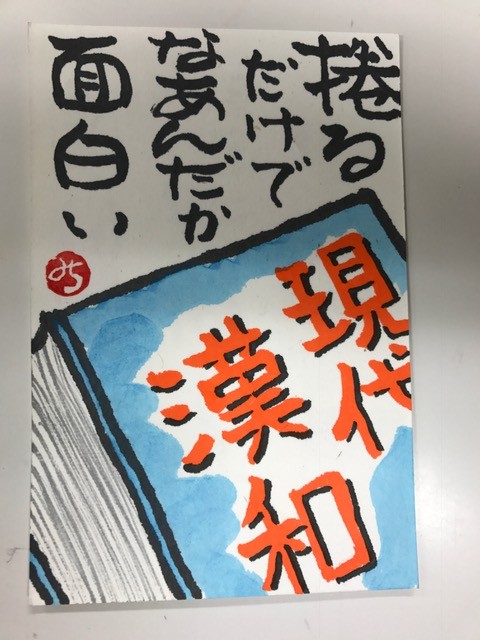 捲る
だけで
なあんだか
面白い
みち
現代
漢和